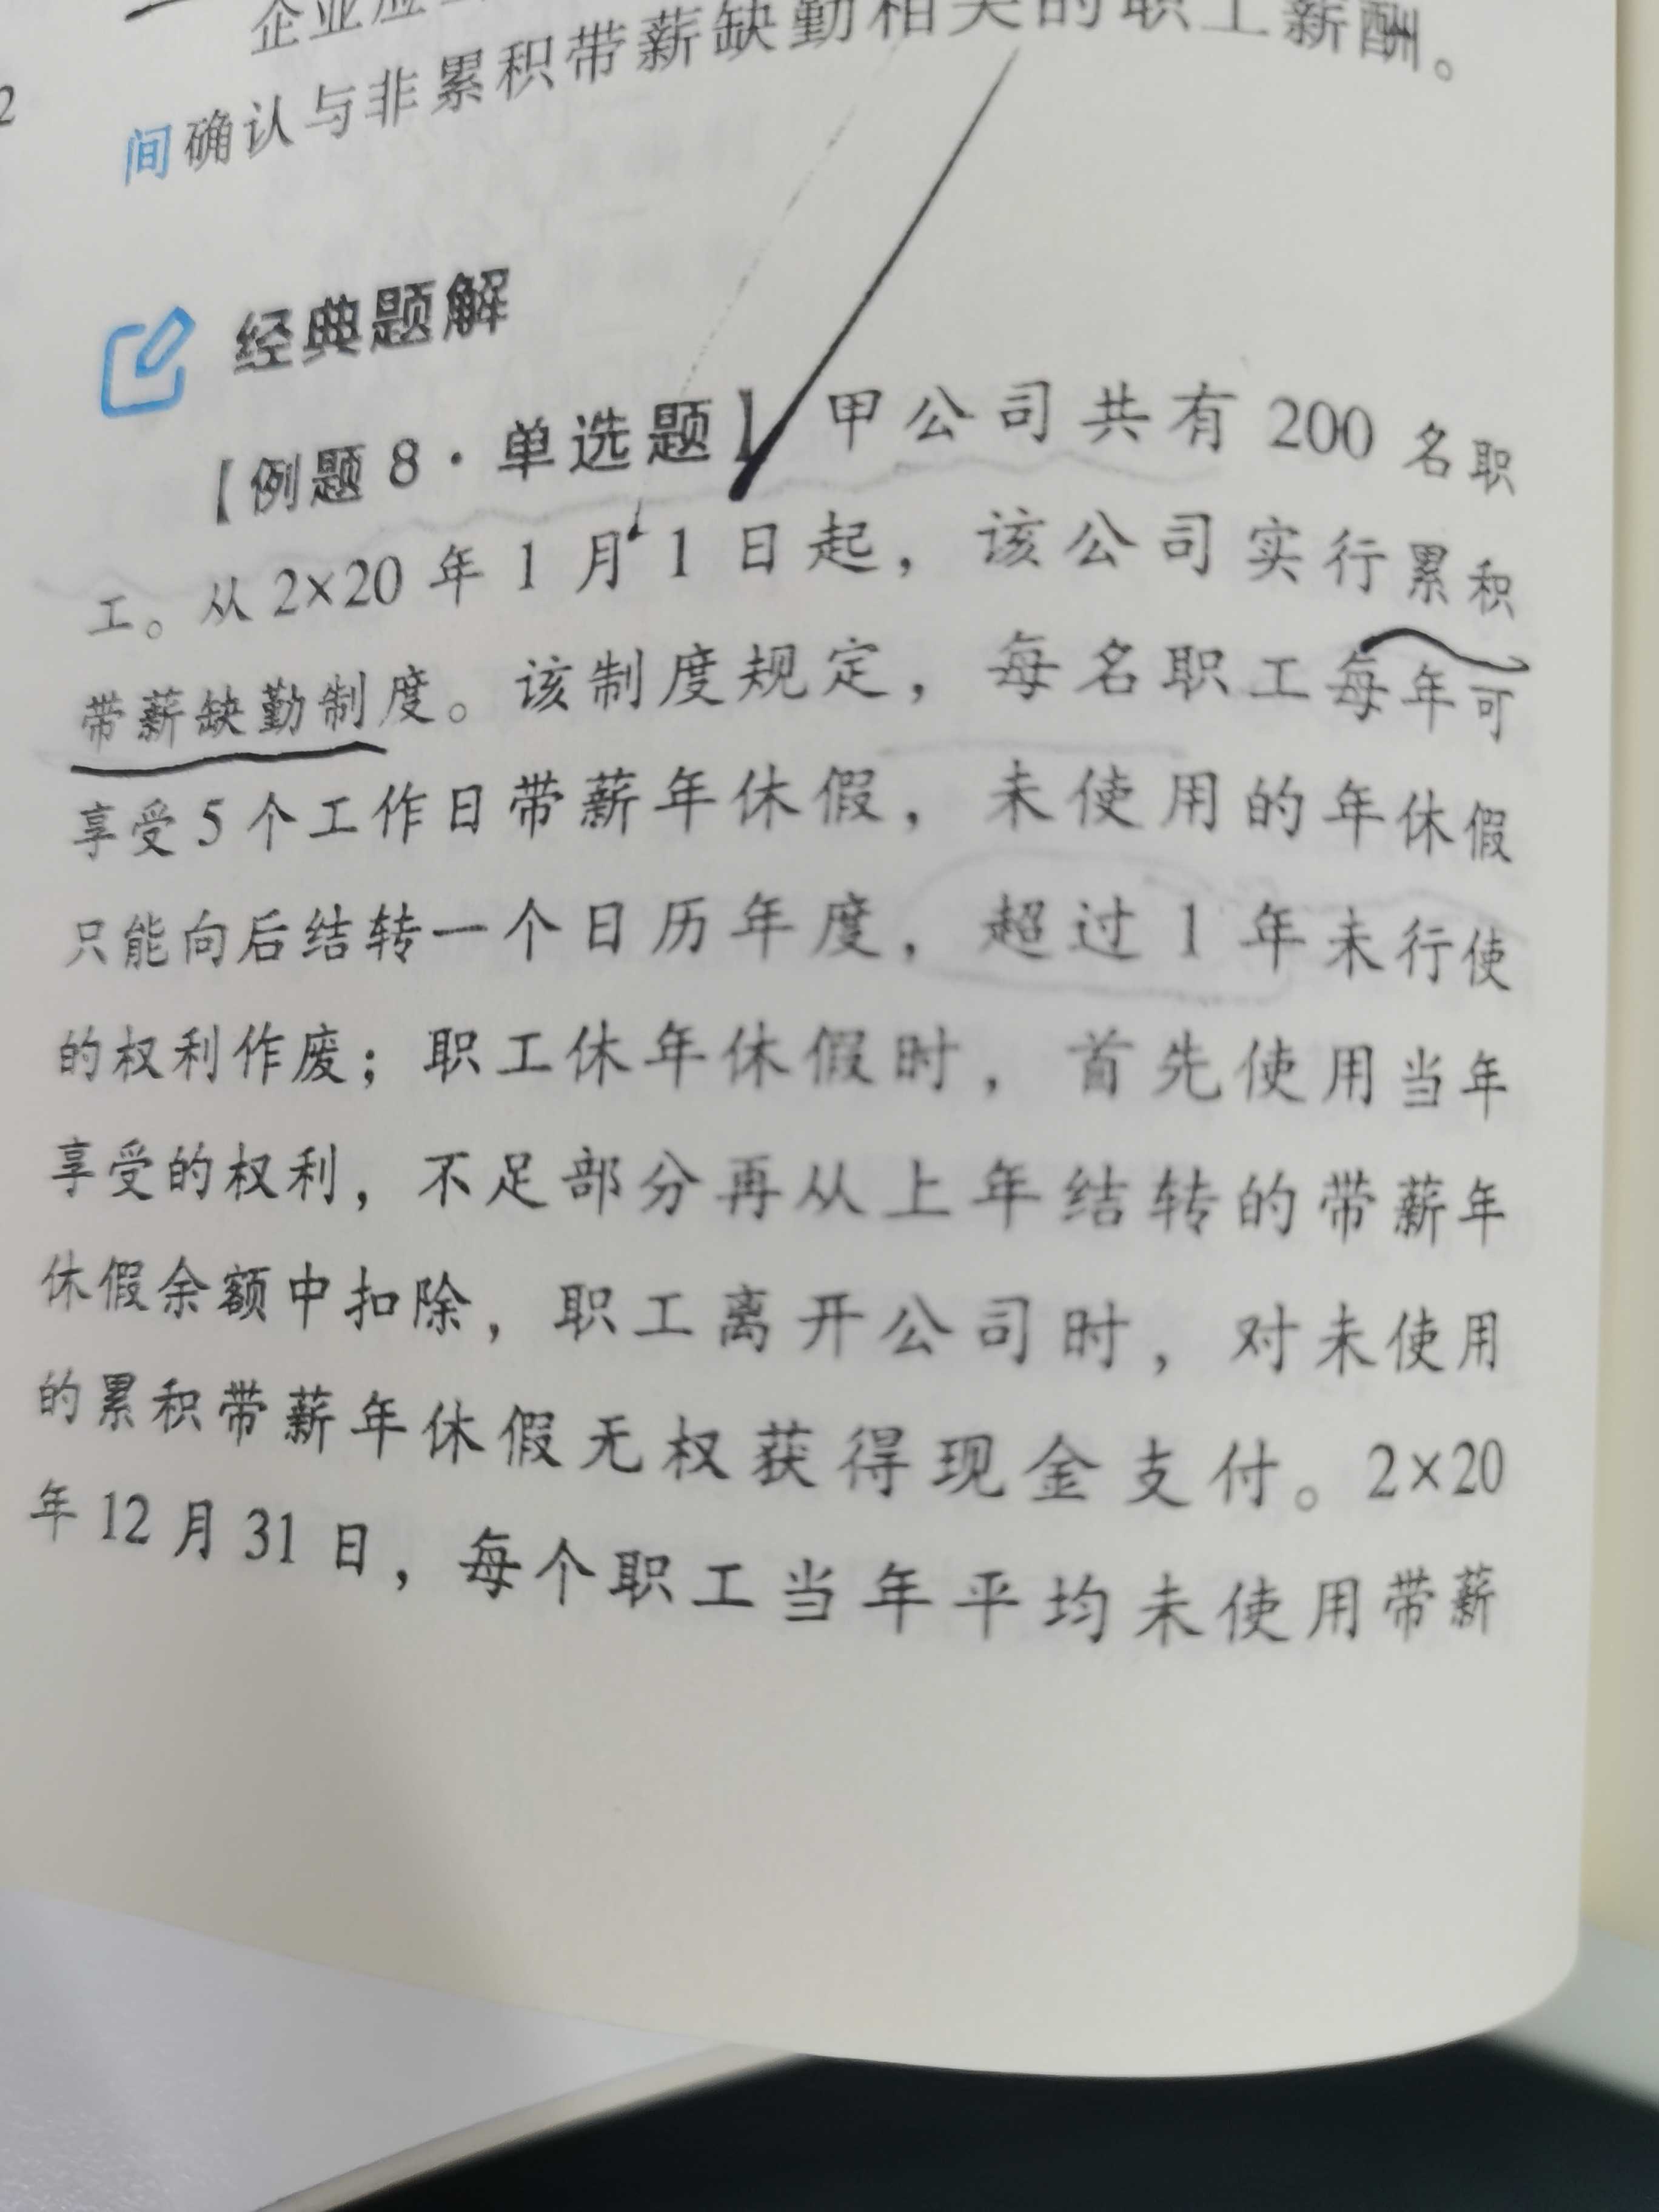 企业应
2
间确认与非累积带薪缺勤相关的职工薪酬。
经典题解
【例题8·单选题】甲公司共有200名职
工。从2×20年1月1日起，该公司实行累积
带薪缺勤制度。该制度规定，每名职工每年可
享受5个工作日带薪年休假，未使用的年休假
只能向后结转一个日历年度，超过1年未行使
的权利作废；职工休年休假时，首先使用当年
享受的权利，不足部分再从上年结转的带薪年
休假余额中扣除，职工离开公司时，对未使用
的累积带薪年休假无权获得现金支付。2×20
年12月31日，每个职工当年平均未使用带薪